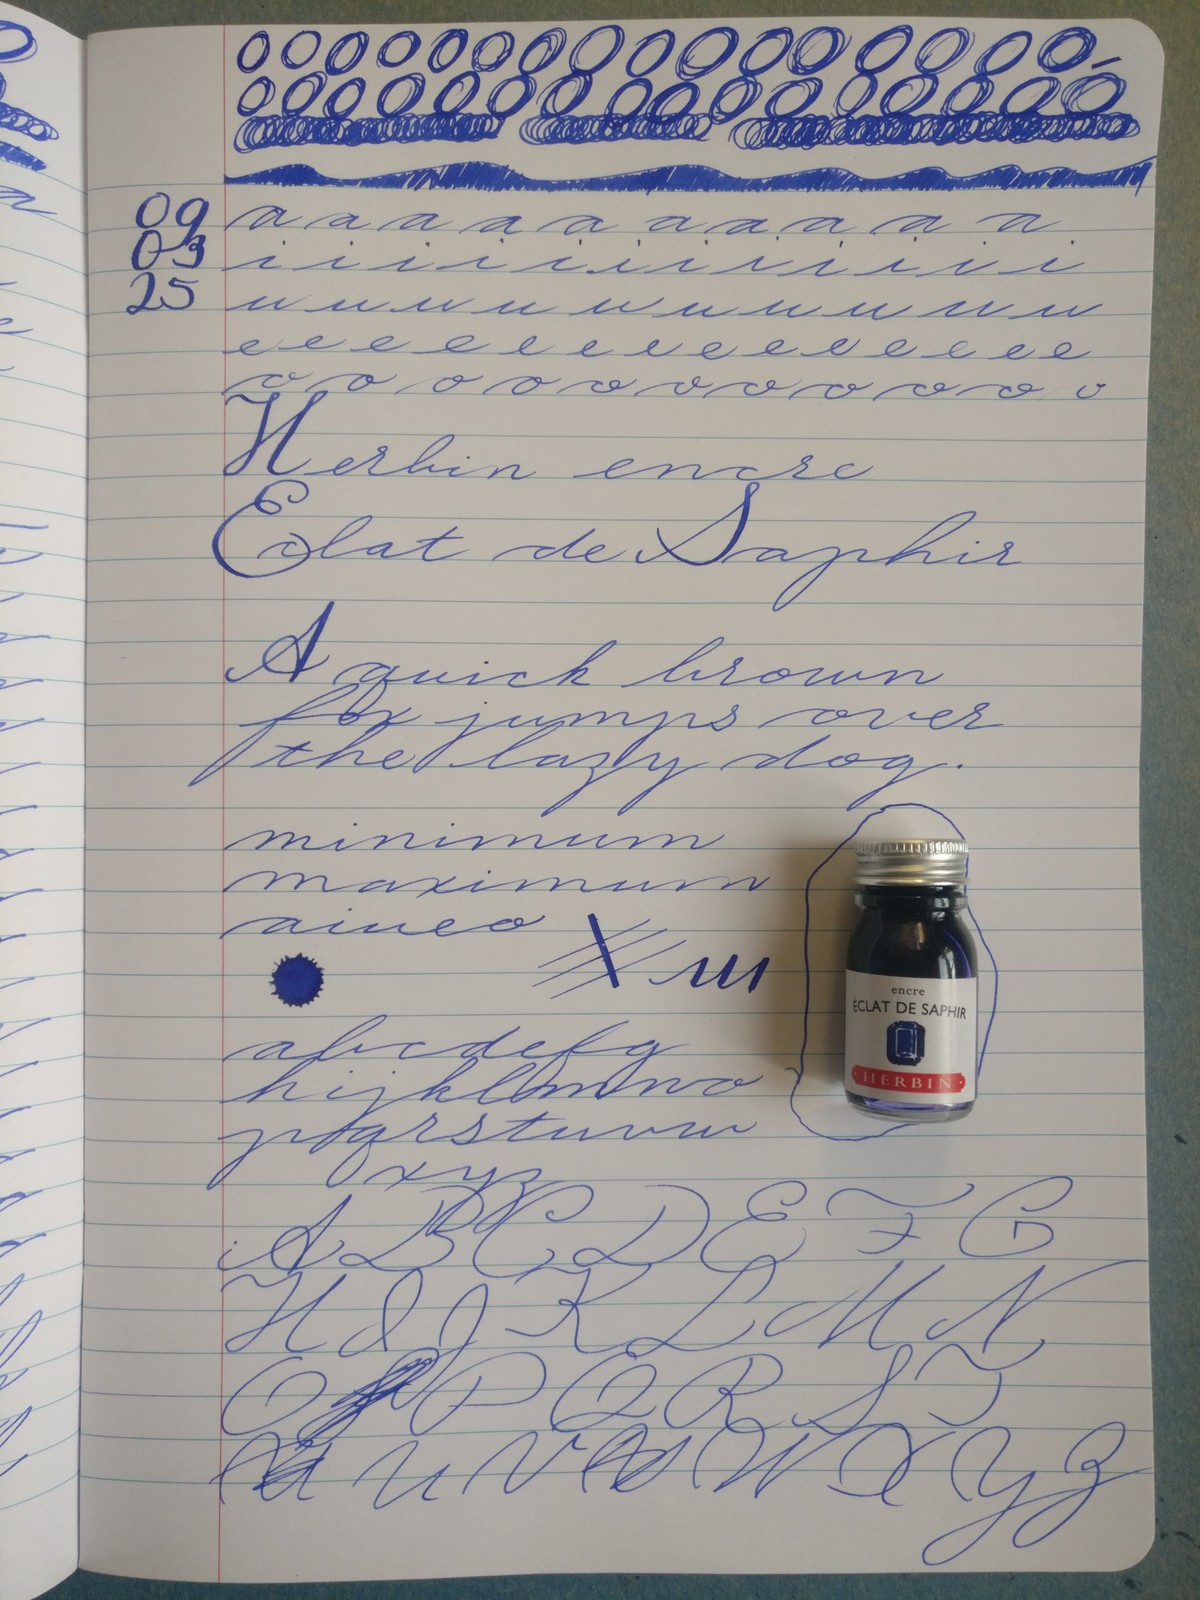 09
03
25
a a a a a a a a a a
i i i i i i i i i i i i i
u u u u u u u u u u u
e e e e e e e e e e e e e e e
o o o o o o o o o o o
Herbin encre
Eclat de Saphir
A quick brown
fox jumps over
the lazy dog.
minimum
maximum
aiueo
encre
ÉCLAT DE SAPHIR
HERBIN
abcdefg
hijklmno
pqrstuvw
xyz
A B C D E F G
H I J K L M N
O P Q R S T
U V W X Y Z